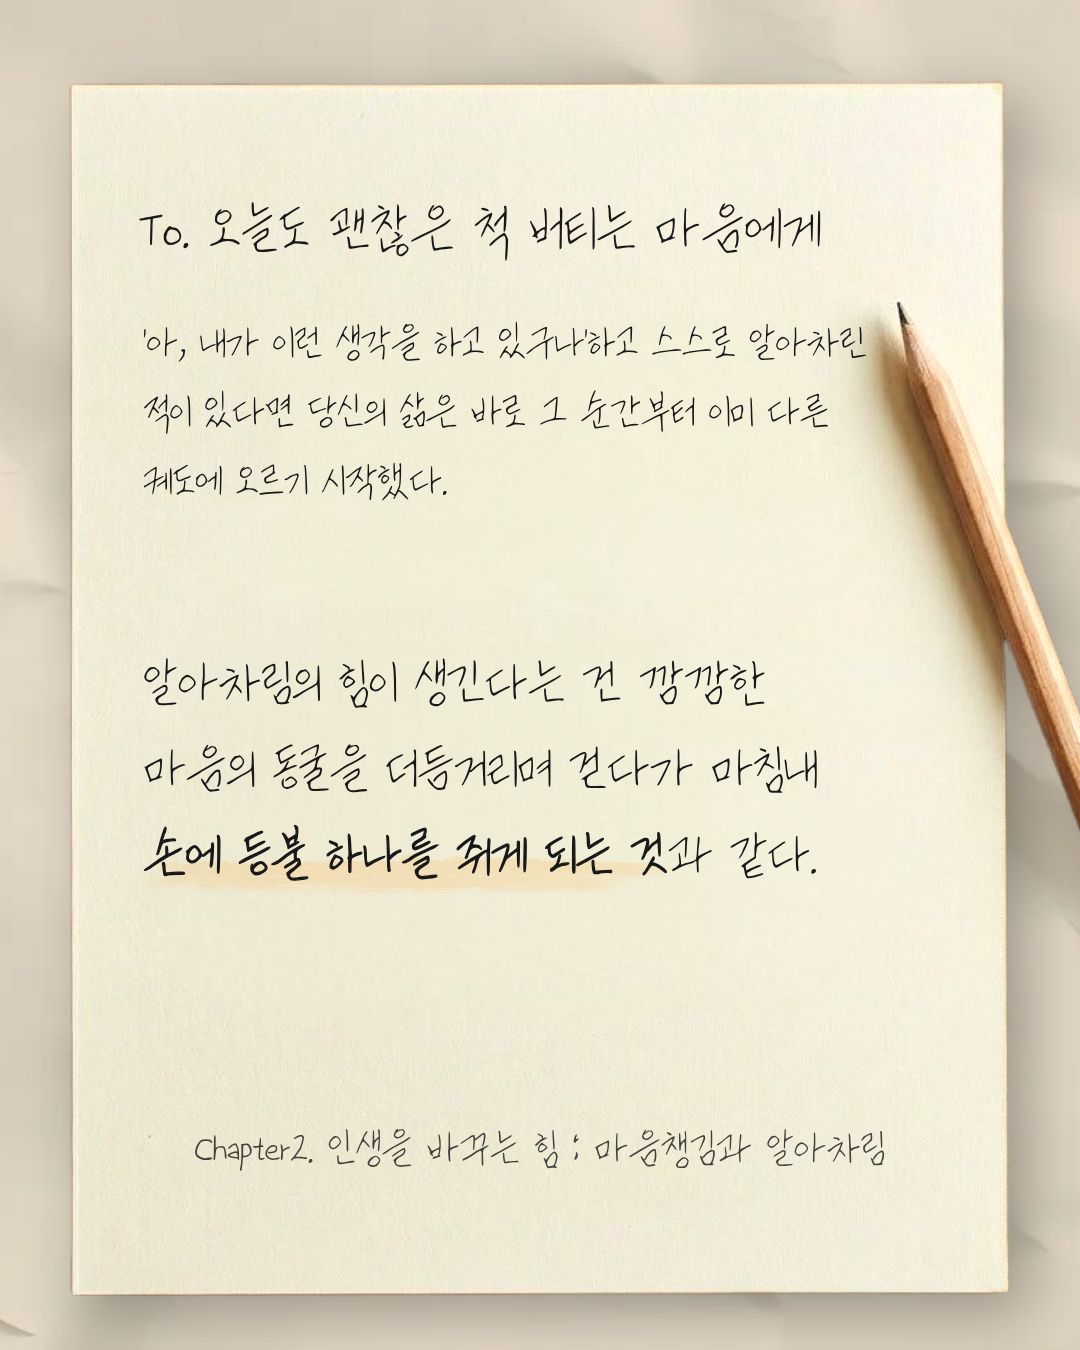 To. 오늘도 괜찮은 척 버티는 마음에게
'아, 내가 이런 생각을 하고 있구나'하고 스스로 알아차린
적이 있다면 당신의 삶은 바로 그 순간부터 이미 다른
궤도에 오르기 시작했다.
알아차림의 힘이 생긴다는 건 깜깜한
마음의 동굴을 더듬거리며 걷다가 마침내
손에 등불 하나를 쥐게 되는 것과 같다.
Chapter2. 인생을 바꾸는 힘 ; 마음챙김과 알아차림